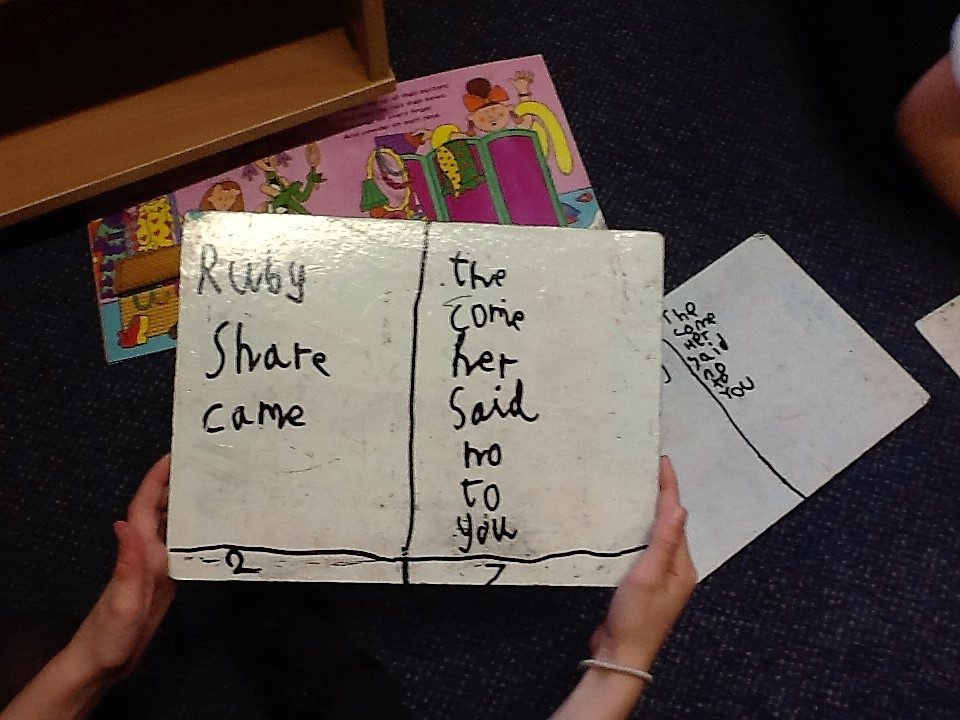 Ruby
Share
came
2
the
come
her
Said
no
to
you
7
The
come
Her
said
no
to
YOU